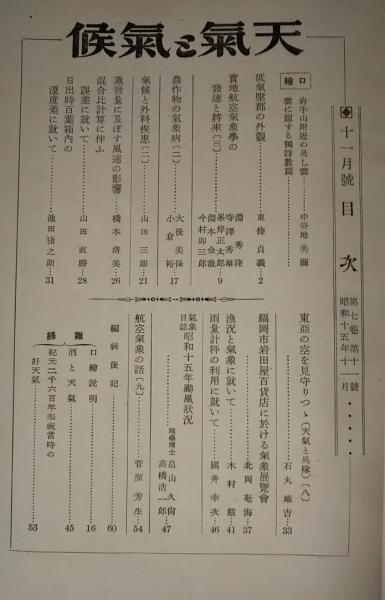 天氣と氣候
十一月號 目次
第七卷第十一號
昭和十五年十一月
口繪
岩手山附近の吊し雲……中谷地美彌
雲に關する獨詩數篇
低氣壓部の外觀……東條貞義…2
實地航空氣象學の
發達と將來〔三〕……淵秀隆
寺澤秀雄
峯岸正太郎
淵本金哉
今村卯三郎…9
農作物の氣象病〔二〕……大後美保
小倉裕…17
氣候と外科疾患〔二〕……山田三郎…21
蒸發量に及ぼす風速の影響……橋本清美…26
混合比計算に伴ふ
誤差に就いて……山田直勝…28
日出時百葉箱內の
溫度差に就いて……池田猪之助…31
東亞の空を見守りつゝ(天氣と兵隊)〔八〕
……石丸雄吉…33
福岡市岩田屋百貨店に於ける氣象展覽會
……北岡菴海…37
漁況と氣象に就いて……木村嚴…41
雨量計秤の利用に就いて……國井幸次…46
氣象日誌 昭和十五年颱風狀況
理學博士 畠山久尙
高橋浩一郎…47
航空氣象の話〔九〕……菅原芳生…54
編輯後記……60
雜錄
口繪說明……16
酒と天氣……45
紀元二千六百年奉祝當時の
好天氣……53